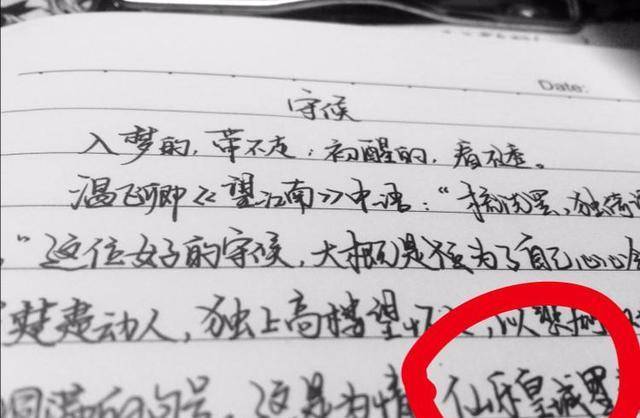 Date:
守候
入梦的,带不走;初醒的,看不全。
温飞卿《望江南》中语:“梳洗罢,独倚
”这位女子的守候,大概是仅为了自己心心念
楚楚动人,独上高楼望
这是为情 仙乐皇城